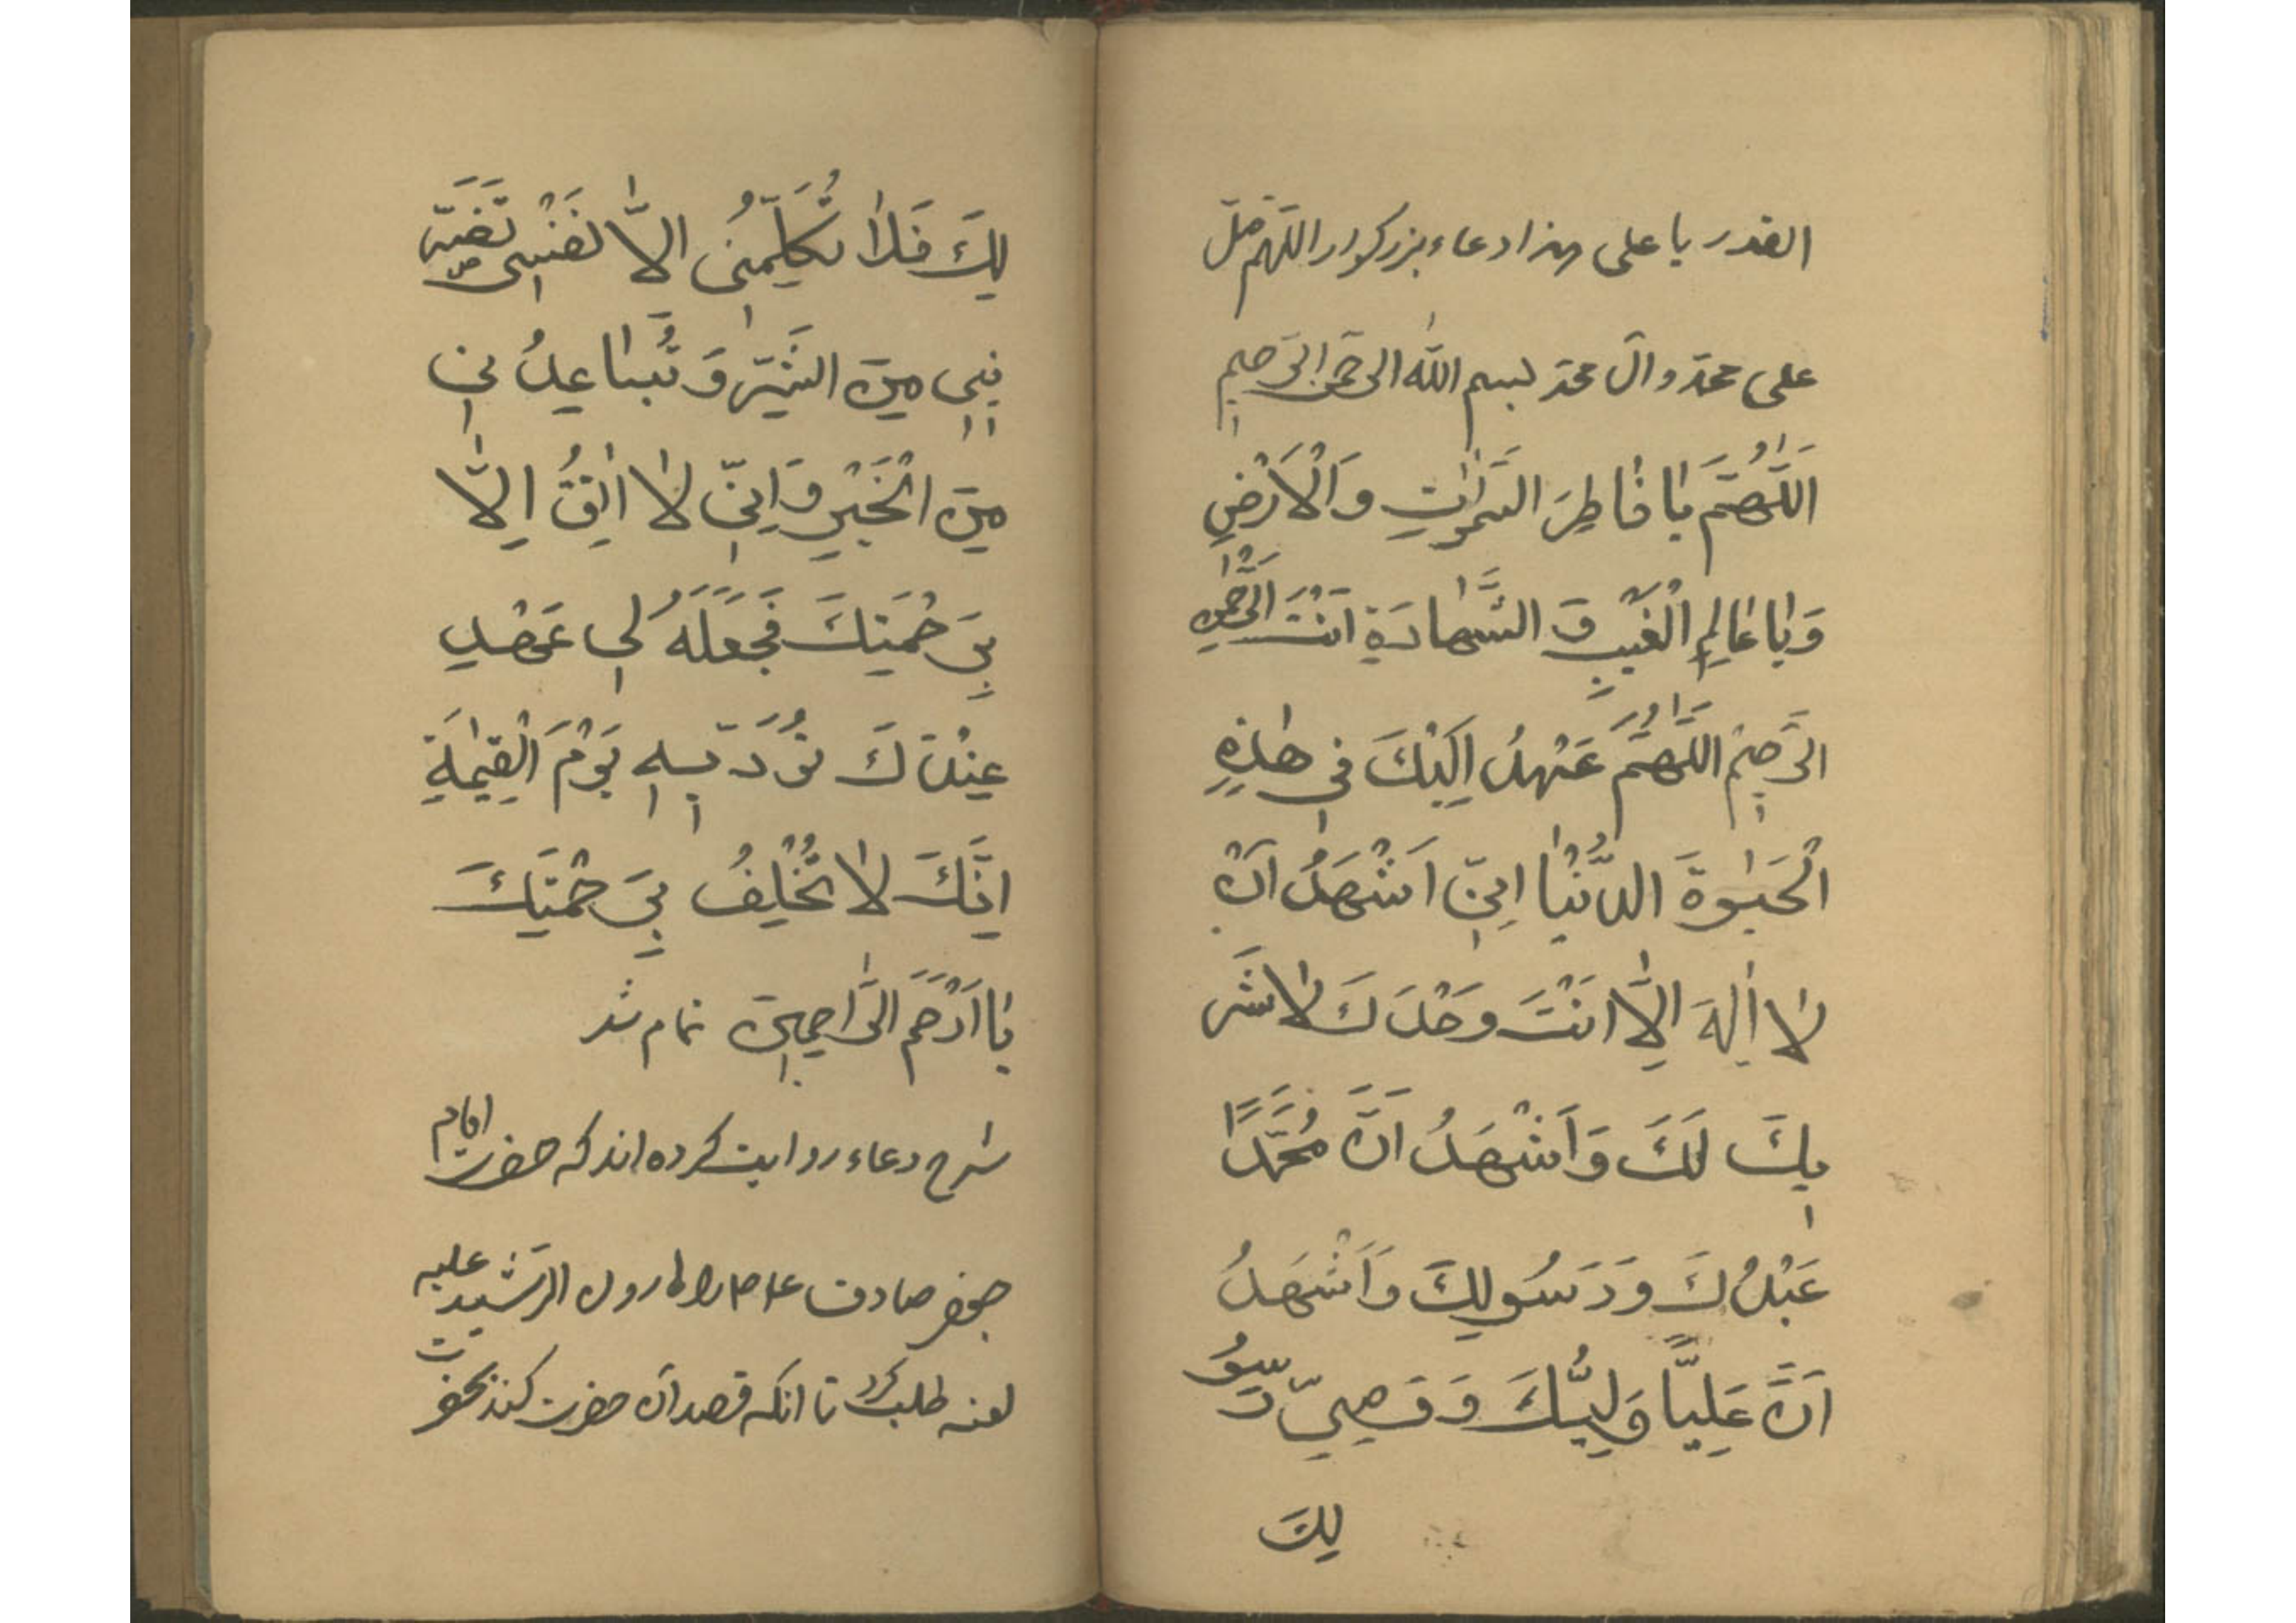 القدر یا علی هذا دعاء بزرکوار اللهم صلّ
علی محمّد و آل محمّد بسم اللّه الرحمن الرّحیم
اَللّٰهُمَّ یٰا فٰاطِرَ السَّمٰوٰاتِ وَالْاَرْضِ
وَیٰا عٰالِمِ الْغَیْبِ وَ الشَّهٰادَةِ اَنْتَ الرَّحْمٰنِ
الرَّحِیْم اَللّٰهُمَّ عَهْهِدُ اِلَیْكَ فی هٰذِهِ
الْحَیٰوةَ الدُّنْیٰا اِنّی اَشْهَدُ اَنْ
لاٰ اِلٰهَ اِلاّٰ اَنْتَ وَحْدَكَ لاٰ شَر
یكَ لَكَ وَ اَشْهَدُ اَنَّ مُحَمَّدًا
عَبْدُكَ وَ رَسُولِكَ وَ اَشْهَدُ
اَنَّ عَلِیًّا وَلِیُّكَ وَ وَصِیّ رَسُو
لِكَ
لِكَ فَلاٰ تُكَلِّمُنی اِلاّٰ نَفْسی تَقَرّ
بنِی مِنَ الشَّرِّ وَ تُبٰاعِدُنی
مِنَ الْخَیْرِ وَ اِنّی لاٰ اٰثِقُ اِلاّٰ
بِرَحْمَتِكَ فَجَعَلَهُ لی عَهْدِ
عِنْدَكَ تُوَرَدّ بِهِ یَوْمَ الْقِیٰمَةِ
اِنَّكَ لاٰ تُخْلِفُ بِرَحْمَتِكَ
یٰا اَرْحَمَ الرّٰاحِمِینَ تمام شد
شرح دعاء روایت کرده اند که حضرت امام
جعفر صادق ع را هارون الرّشید علیه
لعنه طلب کرد تا انکه قصد آن حضرت کند بحضرت